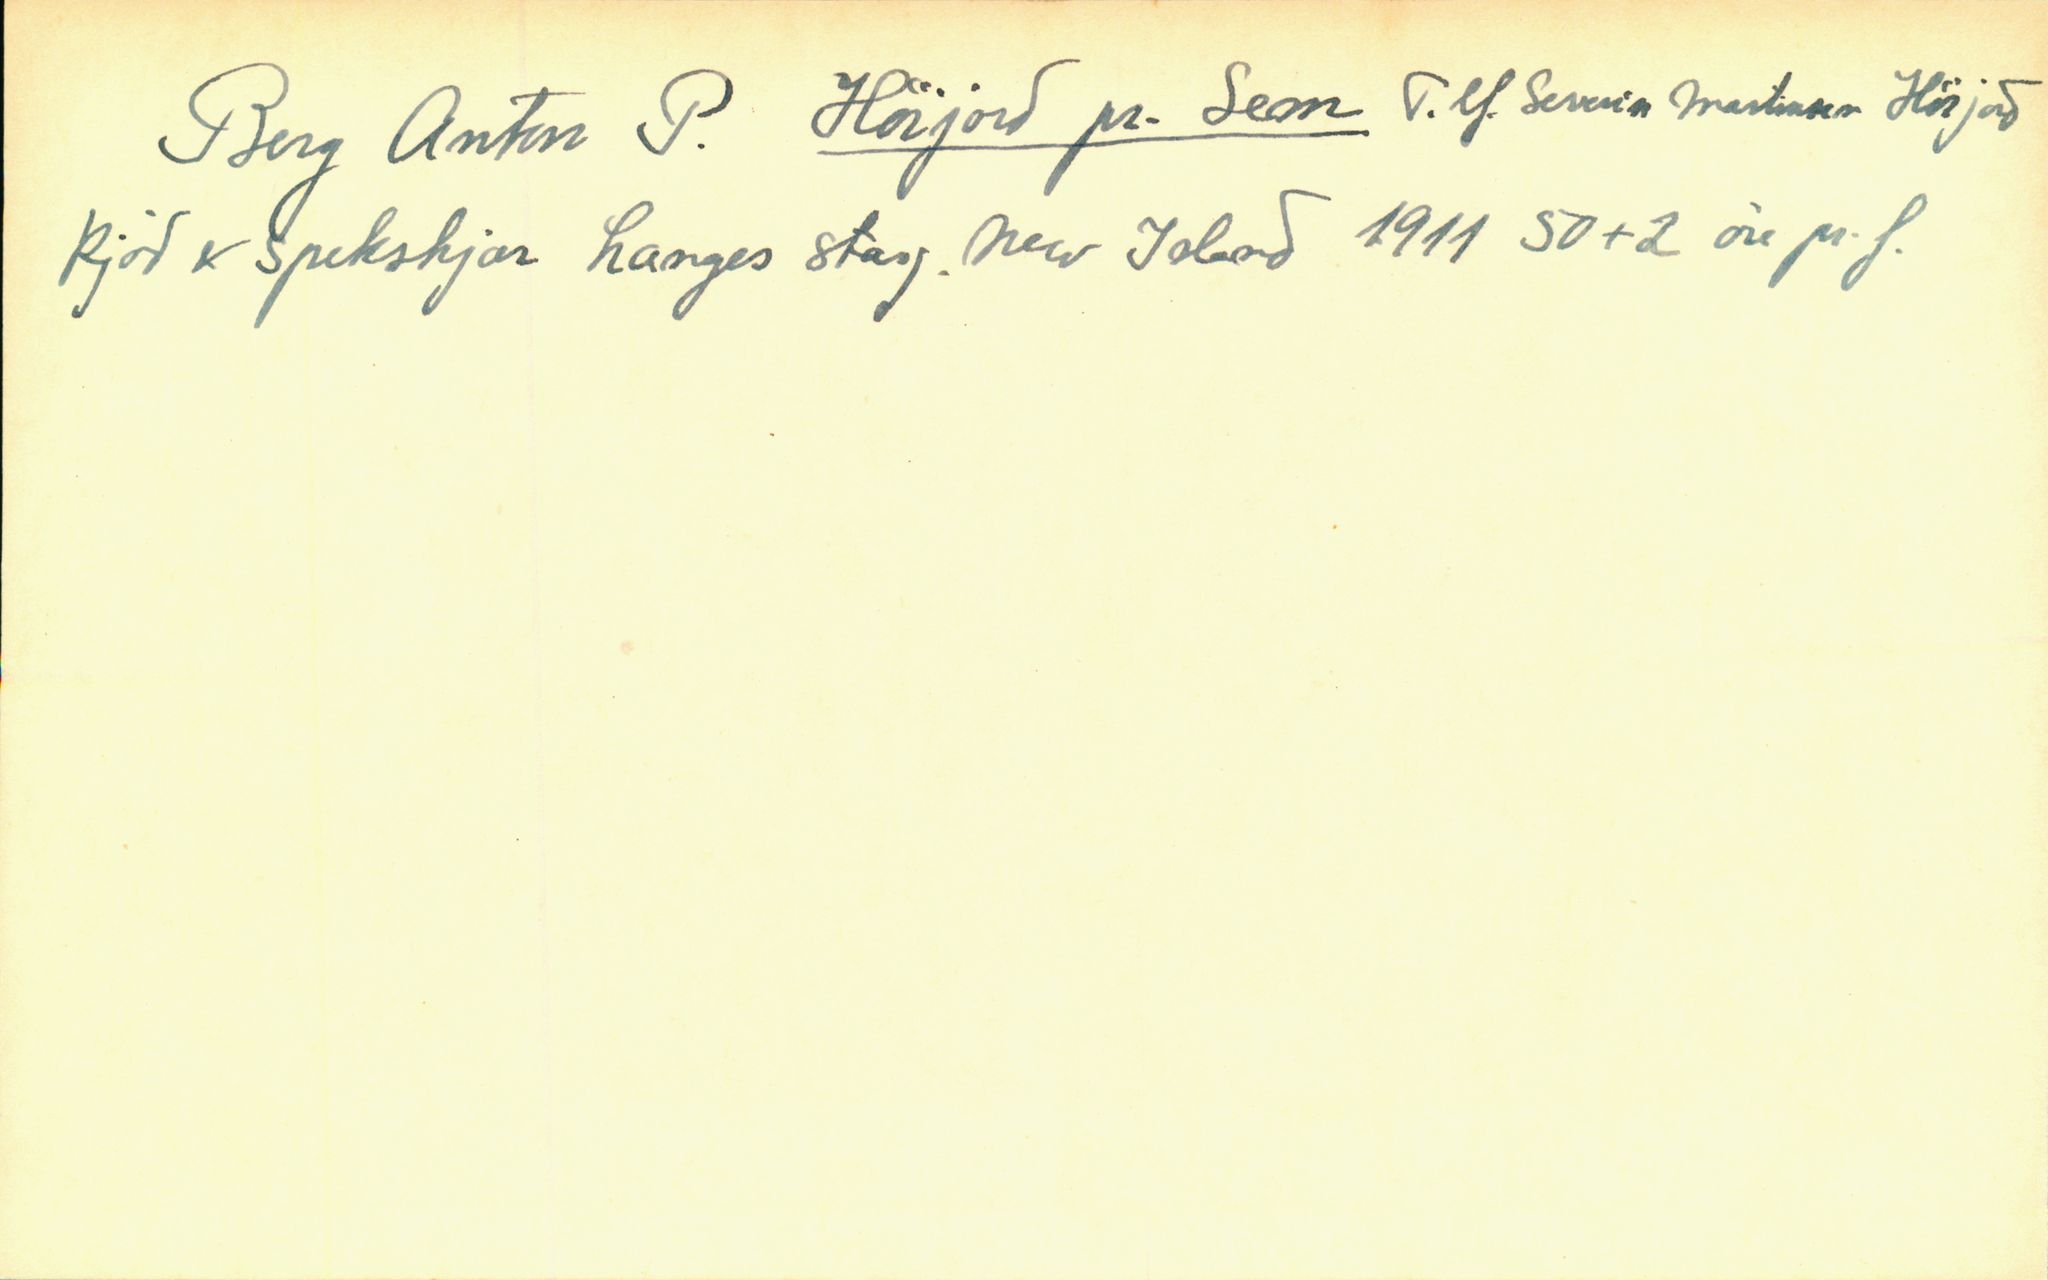 Berg Anton P. Höijord pr. Sem T.lf. Severin Martinsen Höijord
Kjöd & Spekskjær Langes stasj. New Island 1911 50+2 öre pr. f.